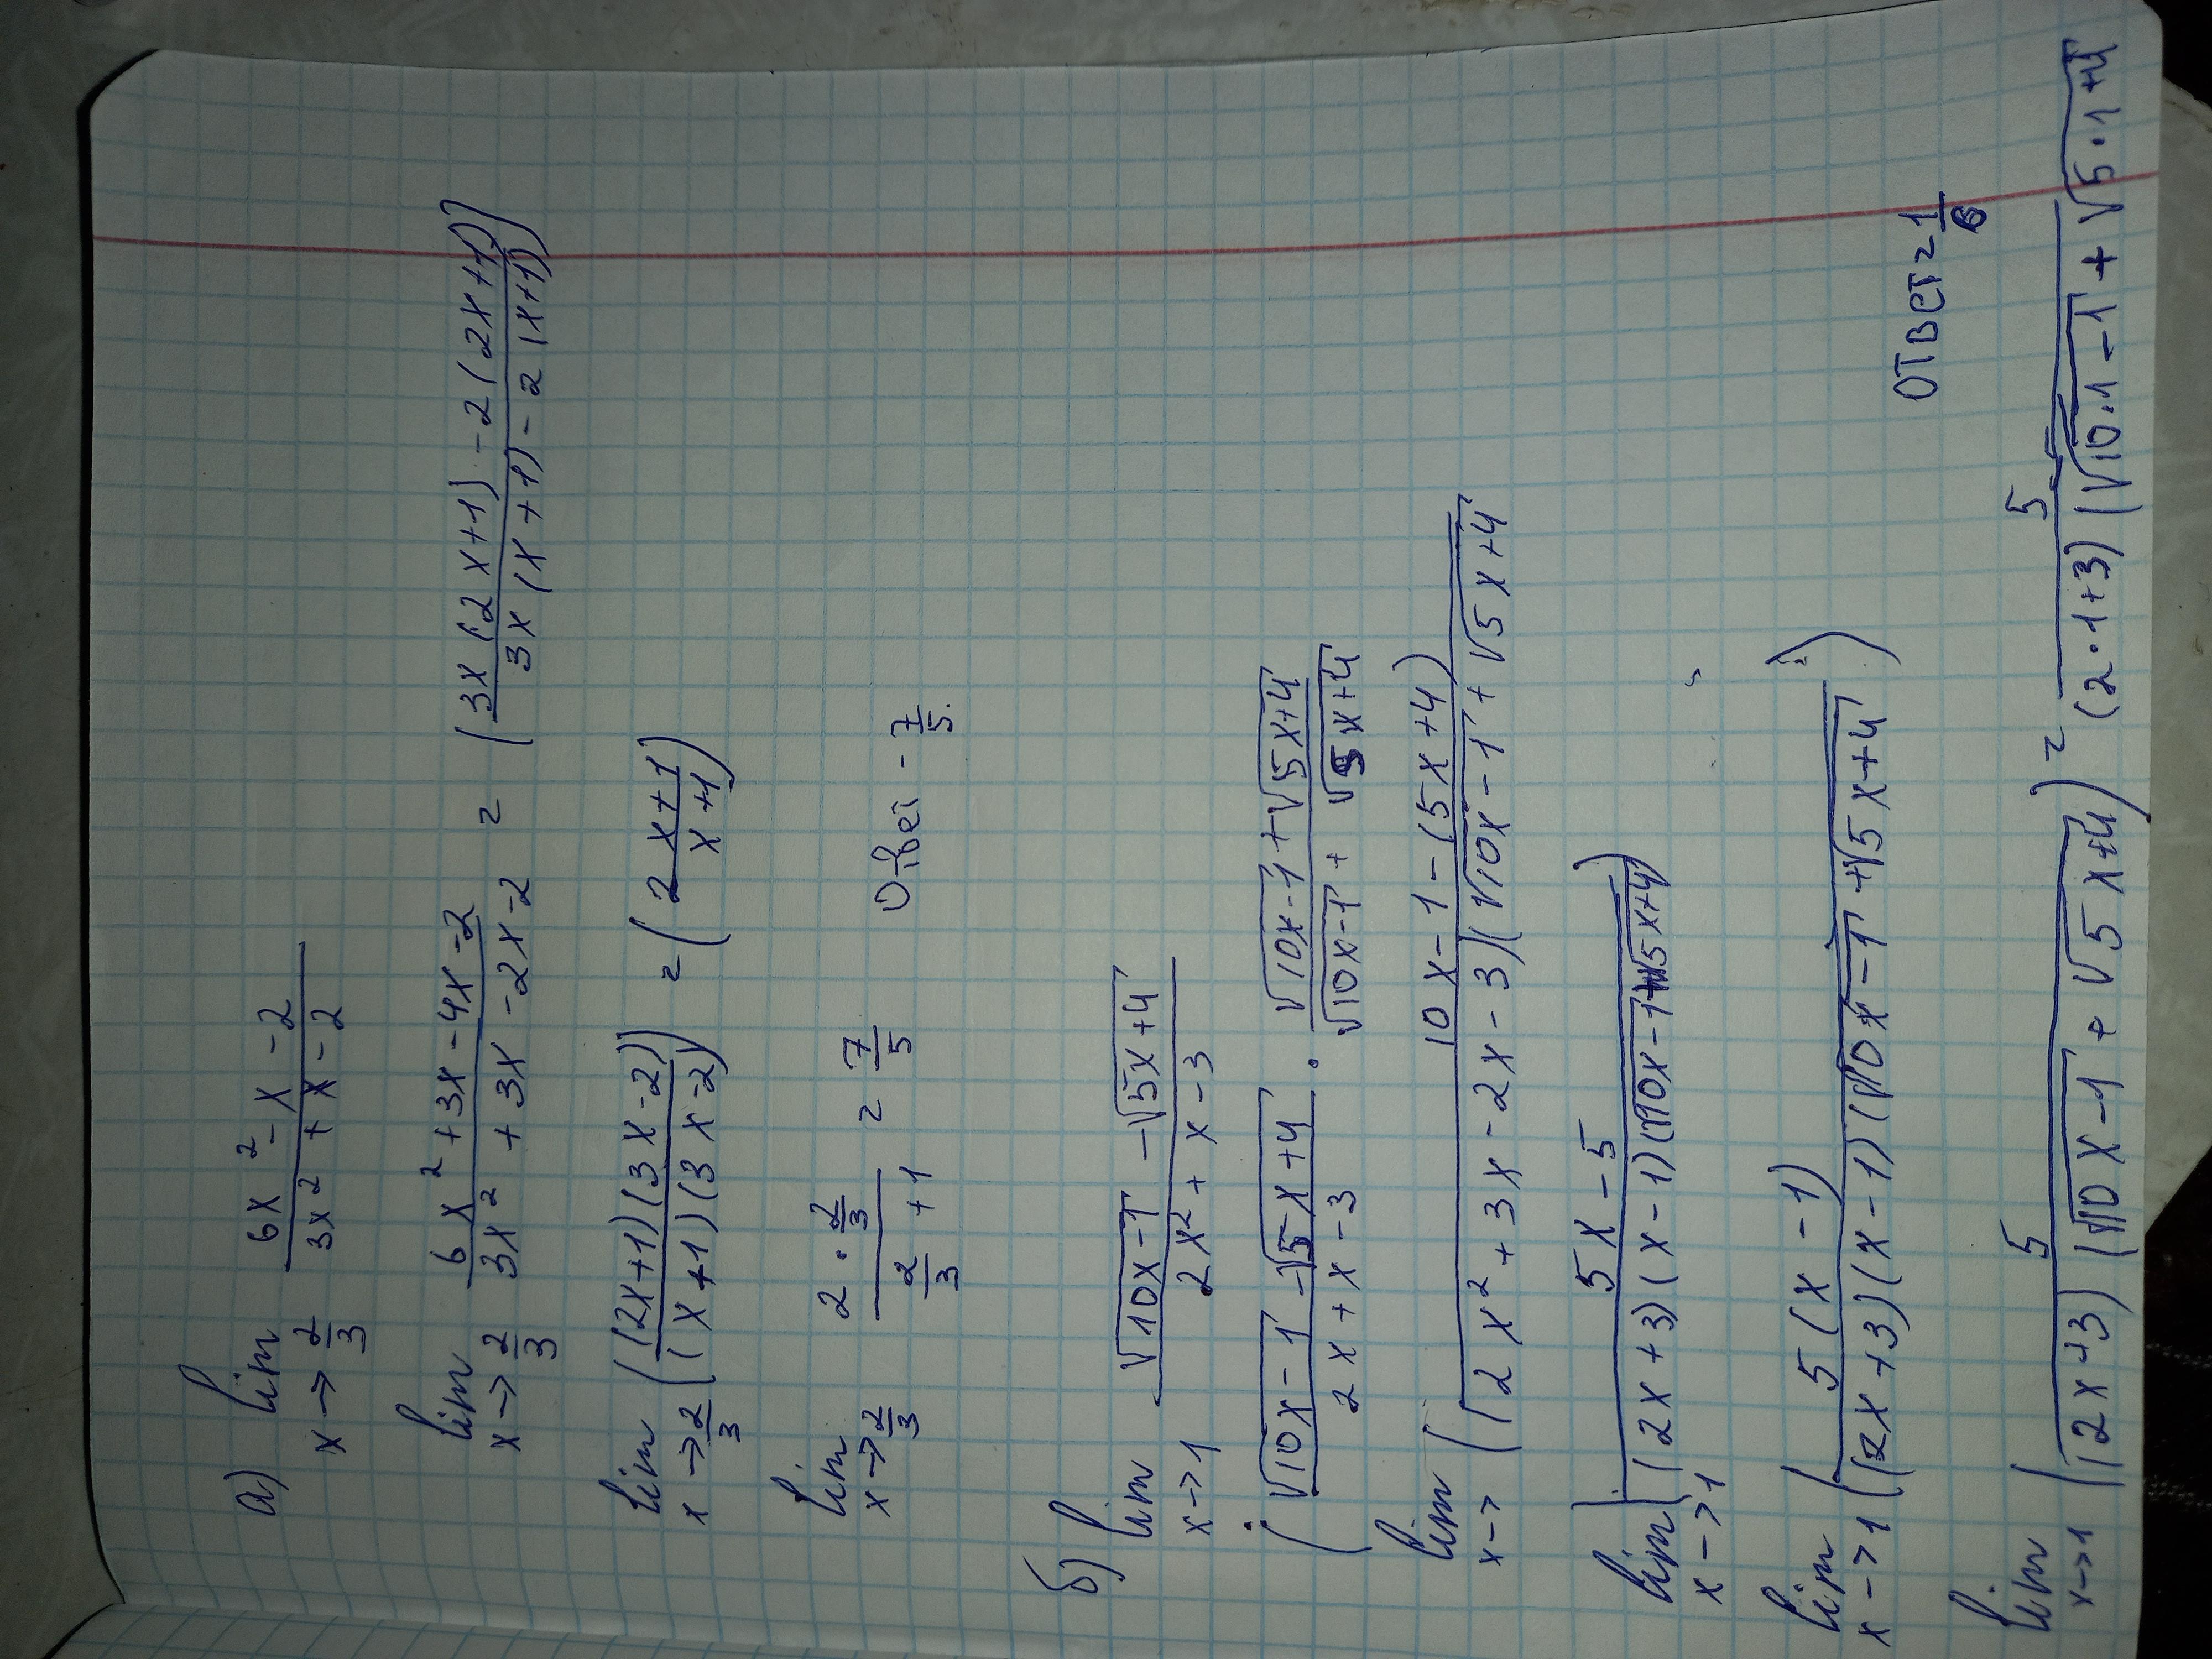 а) lim x→2/3 (6x² - x - 2)/(3x² + x - 2)
lim x→2/3 (6x² + 3x - 4x - 2)/(3x² + 3x - 2x - 2) = (3x(2x+1) - 2(2x+1))/(3x(x+1) - 2(x+1))
lim x→2/3 ((2x+1)(3x-2))/((x+1)(3x-2)) = (2x+1)/(x+1)
lim x→2/3 (2·2/3)/(2/3 + 1) = 7/5 Ответ - 7/5.
б) lim x→1 (√10x-1 - √5x+4)/(2x² + x - 3)
(√10x-1 - √5x+4)/(2x + x - 3) · (√10x-1 + √5x+4)/(√10x-1 + √5x+4)
lim x→ (10x-1-(5x+4))/((2x² + 3x - 2x - 3)(√10x-1 + √5x+4
lim x→1 (5x-5)/((2x+3)(x-1)(√10x-1+√5x+4))
lim x→1 (5(x-1))/((2x+3)(x-1)(√10x-1 + √5x+4))
ответ = 1/6
lim x→1 (5/((2x+3)(√10x-1 + √5x+4)) = 5/((2·1+3)(√10·1-1 + √5·1+4